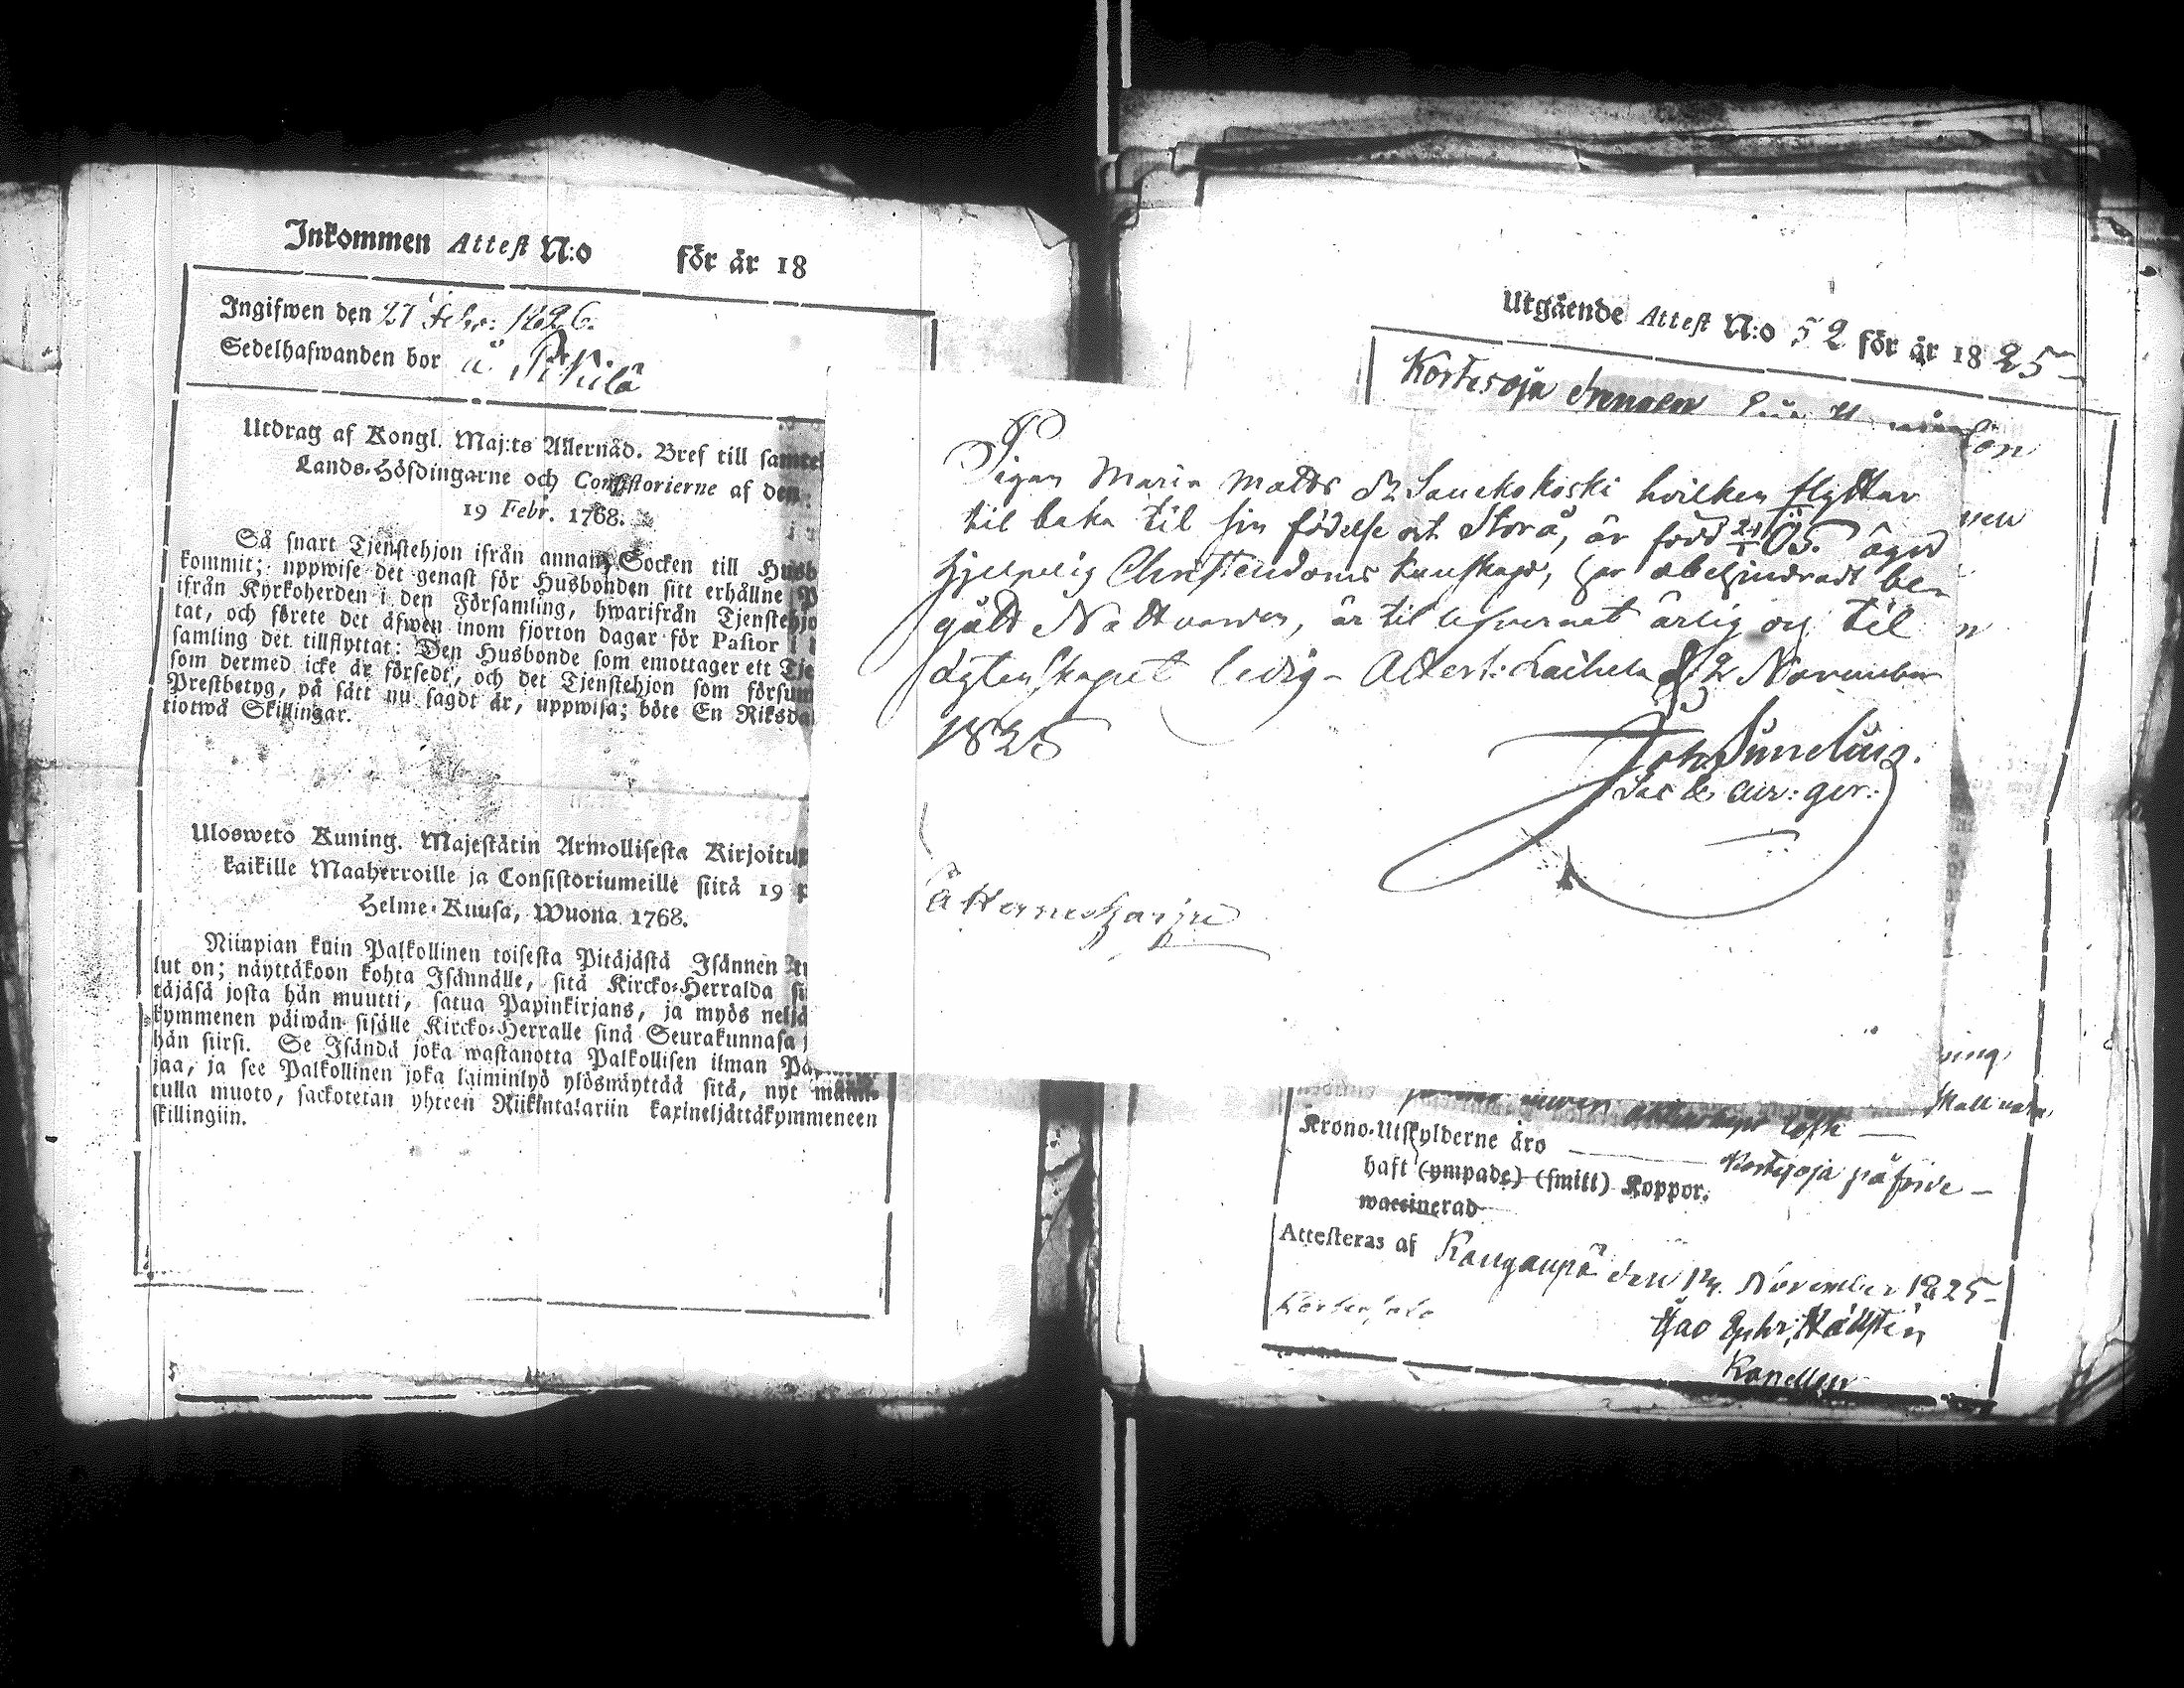 Inkommen Attest N:o för år 18
Ingifwen den 27 Febr: 1826.
Sedelhafwanden bor å
Utdrag af Kongl. Maj:ts Allernåd. Bref till samtel
Lands-Höfdingarne och Consistorierne af den
19 Febr. 1768.
Så snart Tjenstehjon ifrån annan Socken till Husb
kommit; uppwise det genast för Husbonden sitt erhållne P
ifrån Kyrkoherden i den Församling, hwarifrån Tjenstehjo
tat, och förete det äfwen inom fjorton dagar för Pastor i
samling det tillflyttat: Den Husbonde som emottager ett Tje
som dermed icke är försedt, och det Tjenstehjon som försum
Prestbetyg, på sätt nu sagdt är, uppwisa; böte En Riksda
tiotwå Skillingar.
Ulosweto Kuning. Majestätin Armollisesta Kirjoitu
kaikille Maaherroille ja Consistoriumeille siitä 19 p
Helme-Kuusa, Wuona 1768.
Niinpian kuin Palkollinen toisesta Pitäjästä Isännen ty
lut on; näyttäkoon kohta Isännälle, sitä Kircko-Herralda si
täjäsä josta hän muutti, satua Papinkirjans, ja myös neljä
kymmenen päiwän sisälle Kircko-Herralle sinä Seurakunnasa j
hän siirsi. Se Isändä joka wastanotta Palkollisen ilman Pa
jaa, ja see Palkollinen joka laiminlyö ylösnäyttää sitä, nyt
tulla muoto, sackotetan yhteen Riikintalariin kaxineljättäkymmeneen
skillingiin.
Pigan Maria Matts dr Sauckokoski hvilken flyttar
til baka til sin födelse ort Storå, är född 24/1 05. äger
hjelpelig Christendoms kunskap, har obehindradt be-
gått Nattvarden, är til lefvernet ärlig og til
ägtenskapet ledig - Attest: Laihela d. 2 November
1825
Joh Sunelius.
Sac & cur: ger:
å Herneskarju
Utgående Attest N:o 52 för år 1825
Kortesoja drengen
Krono-Utskylderne äro
Kortesoja påförde
haft (ympade) (smitt) Koppor.
waccinerad
Attesteras af Kauganpä den 14. November 1825